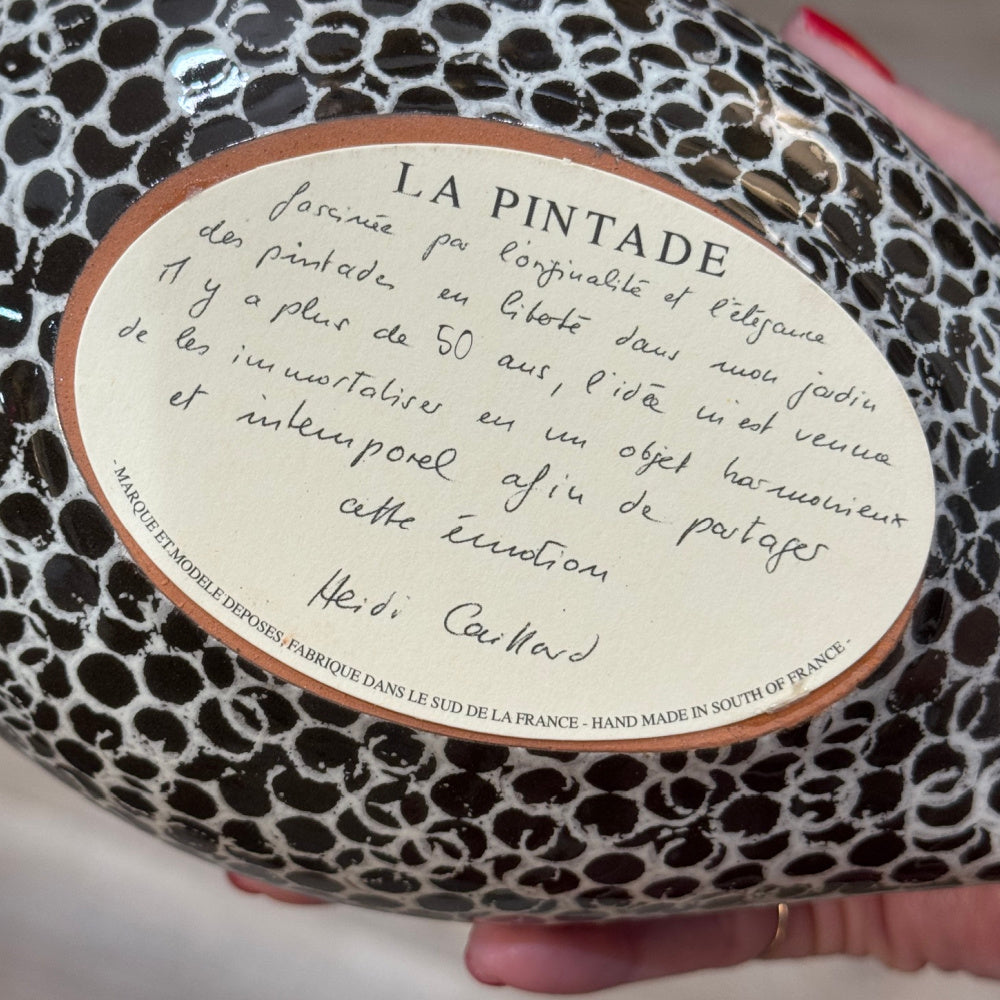 LA PINTADE
fascinée par l'originalité et l'élégance
des pintades en liberté dans mon jardin
Il y a plus de 50 ans, l'idée m'est venue
de les immortaliser en un objet harmonieux
et intemporel afin de partager
cette émotion
Heidi Caillard
- MARQUE ET MODELE DEPOSES, FABRIQUE DANS LE SUD DE LA FRANCE - HAND MADE IN SOUTH OF FRANCE -